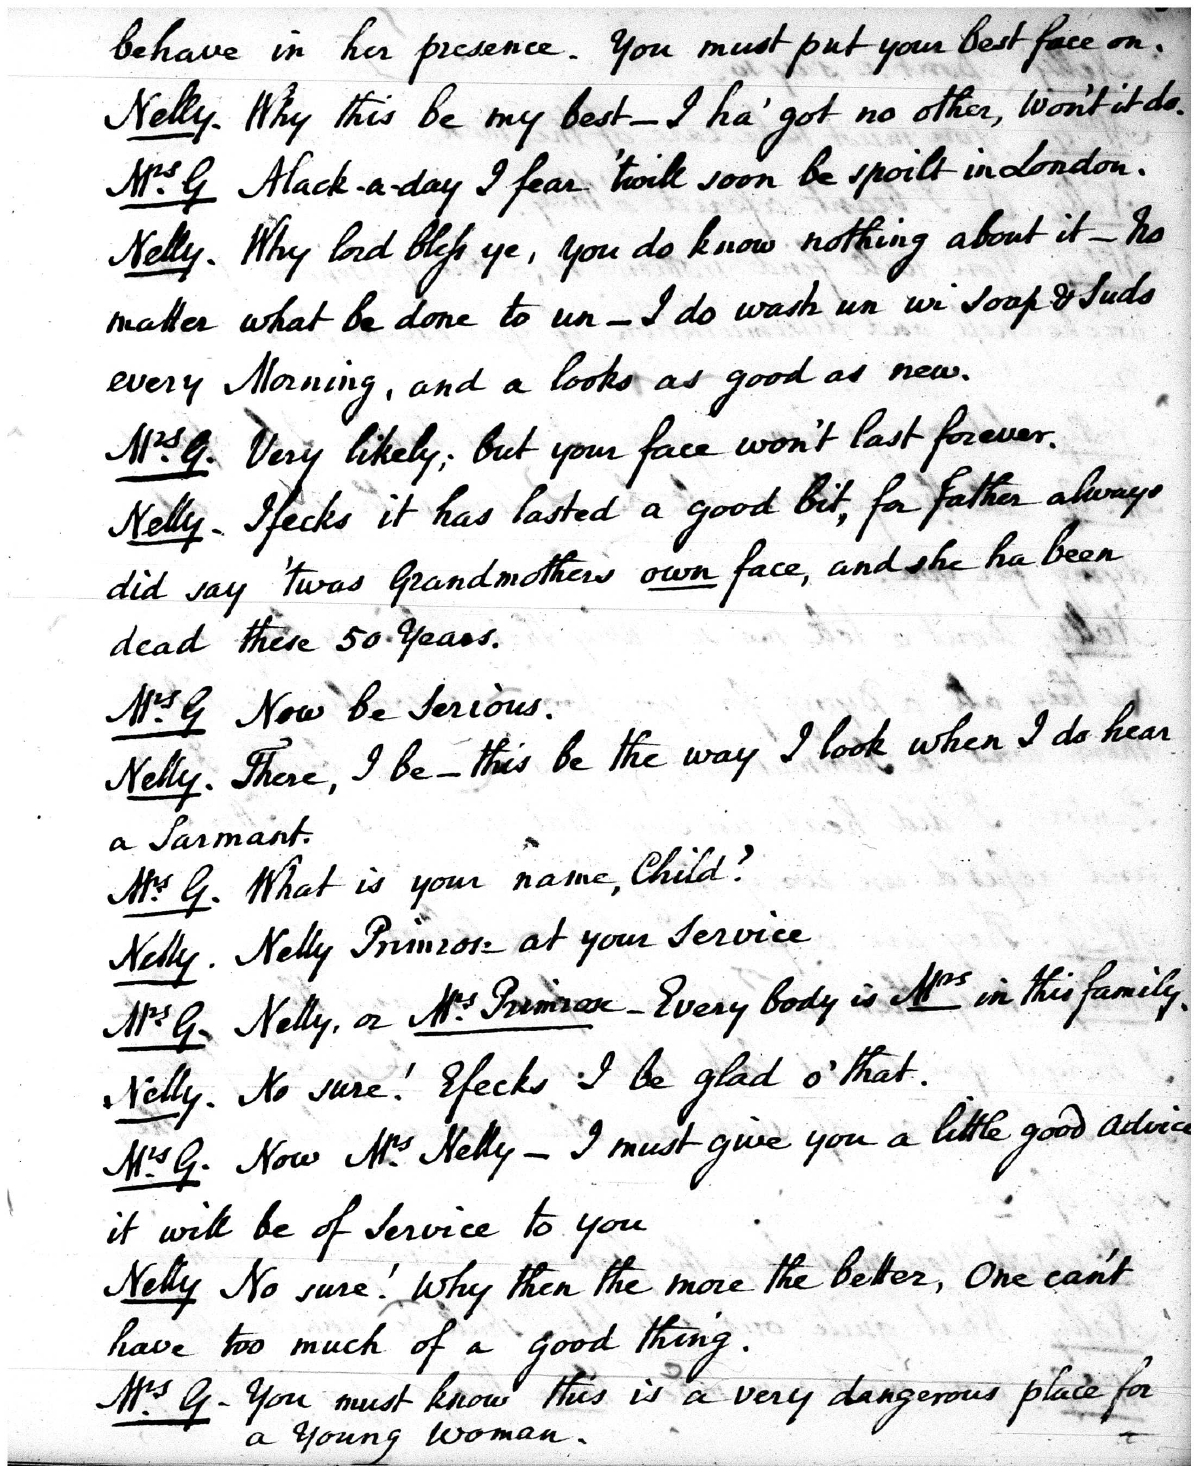 behave in her presence. You must put your best face on.
Nelly. Why this be my best – I ha' got no other, won't it do.
Mrs. G Alack-a-day I fear 'twill soon be spoilt in London.
Nelly. Why lord bless ye, you do know nothing about it – No
matter what be done to un – I do wash un wi Soap & Suds
every Morning, and a looks as good as new.
Mrs. G. Very likely; but your face won't last forever.
Nelly. Ifecks it has lasted a good bit, for Father always
did say 'twas Grandmothers own face, and she ha been
dead these 50 Years.
Mrs. G Now be Serious.
Nelly. There, I be – this be the way I look when I do hear
a Sarmant.
Mrs. G. What is your name, Child?
Nelly. Nelly Primrose at your Service
Mrs. G. Nelly, or Mrs. Primrose – Every body is Mrs in this family.
Nelly. No sure! Efecks I be glad o' that.
Mrs. G. Now Mrs. Nelly – I must give you a little good advice
it will be of Service to you
Nelly No sure! Why then the more the better, One can't
have too much of a good thing.
Mrs. G – You must know this is a very dangerous place for
a Young Woman.
a